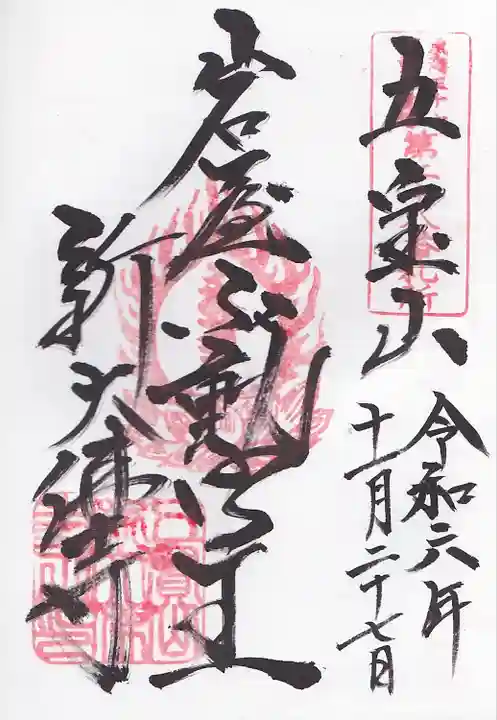 五宝山
令和六年
十一月二十七日
岩屋不動明王
新大佛寺